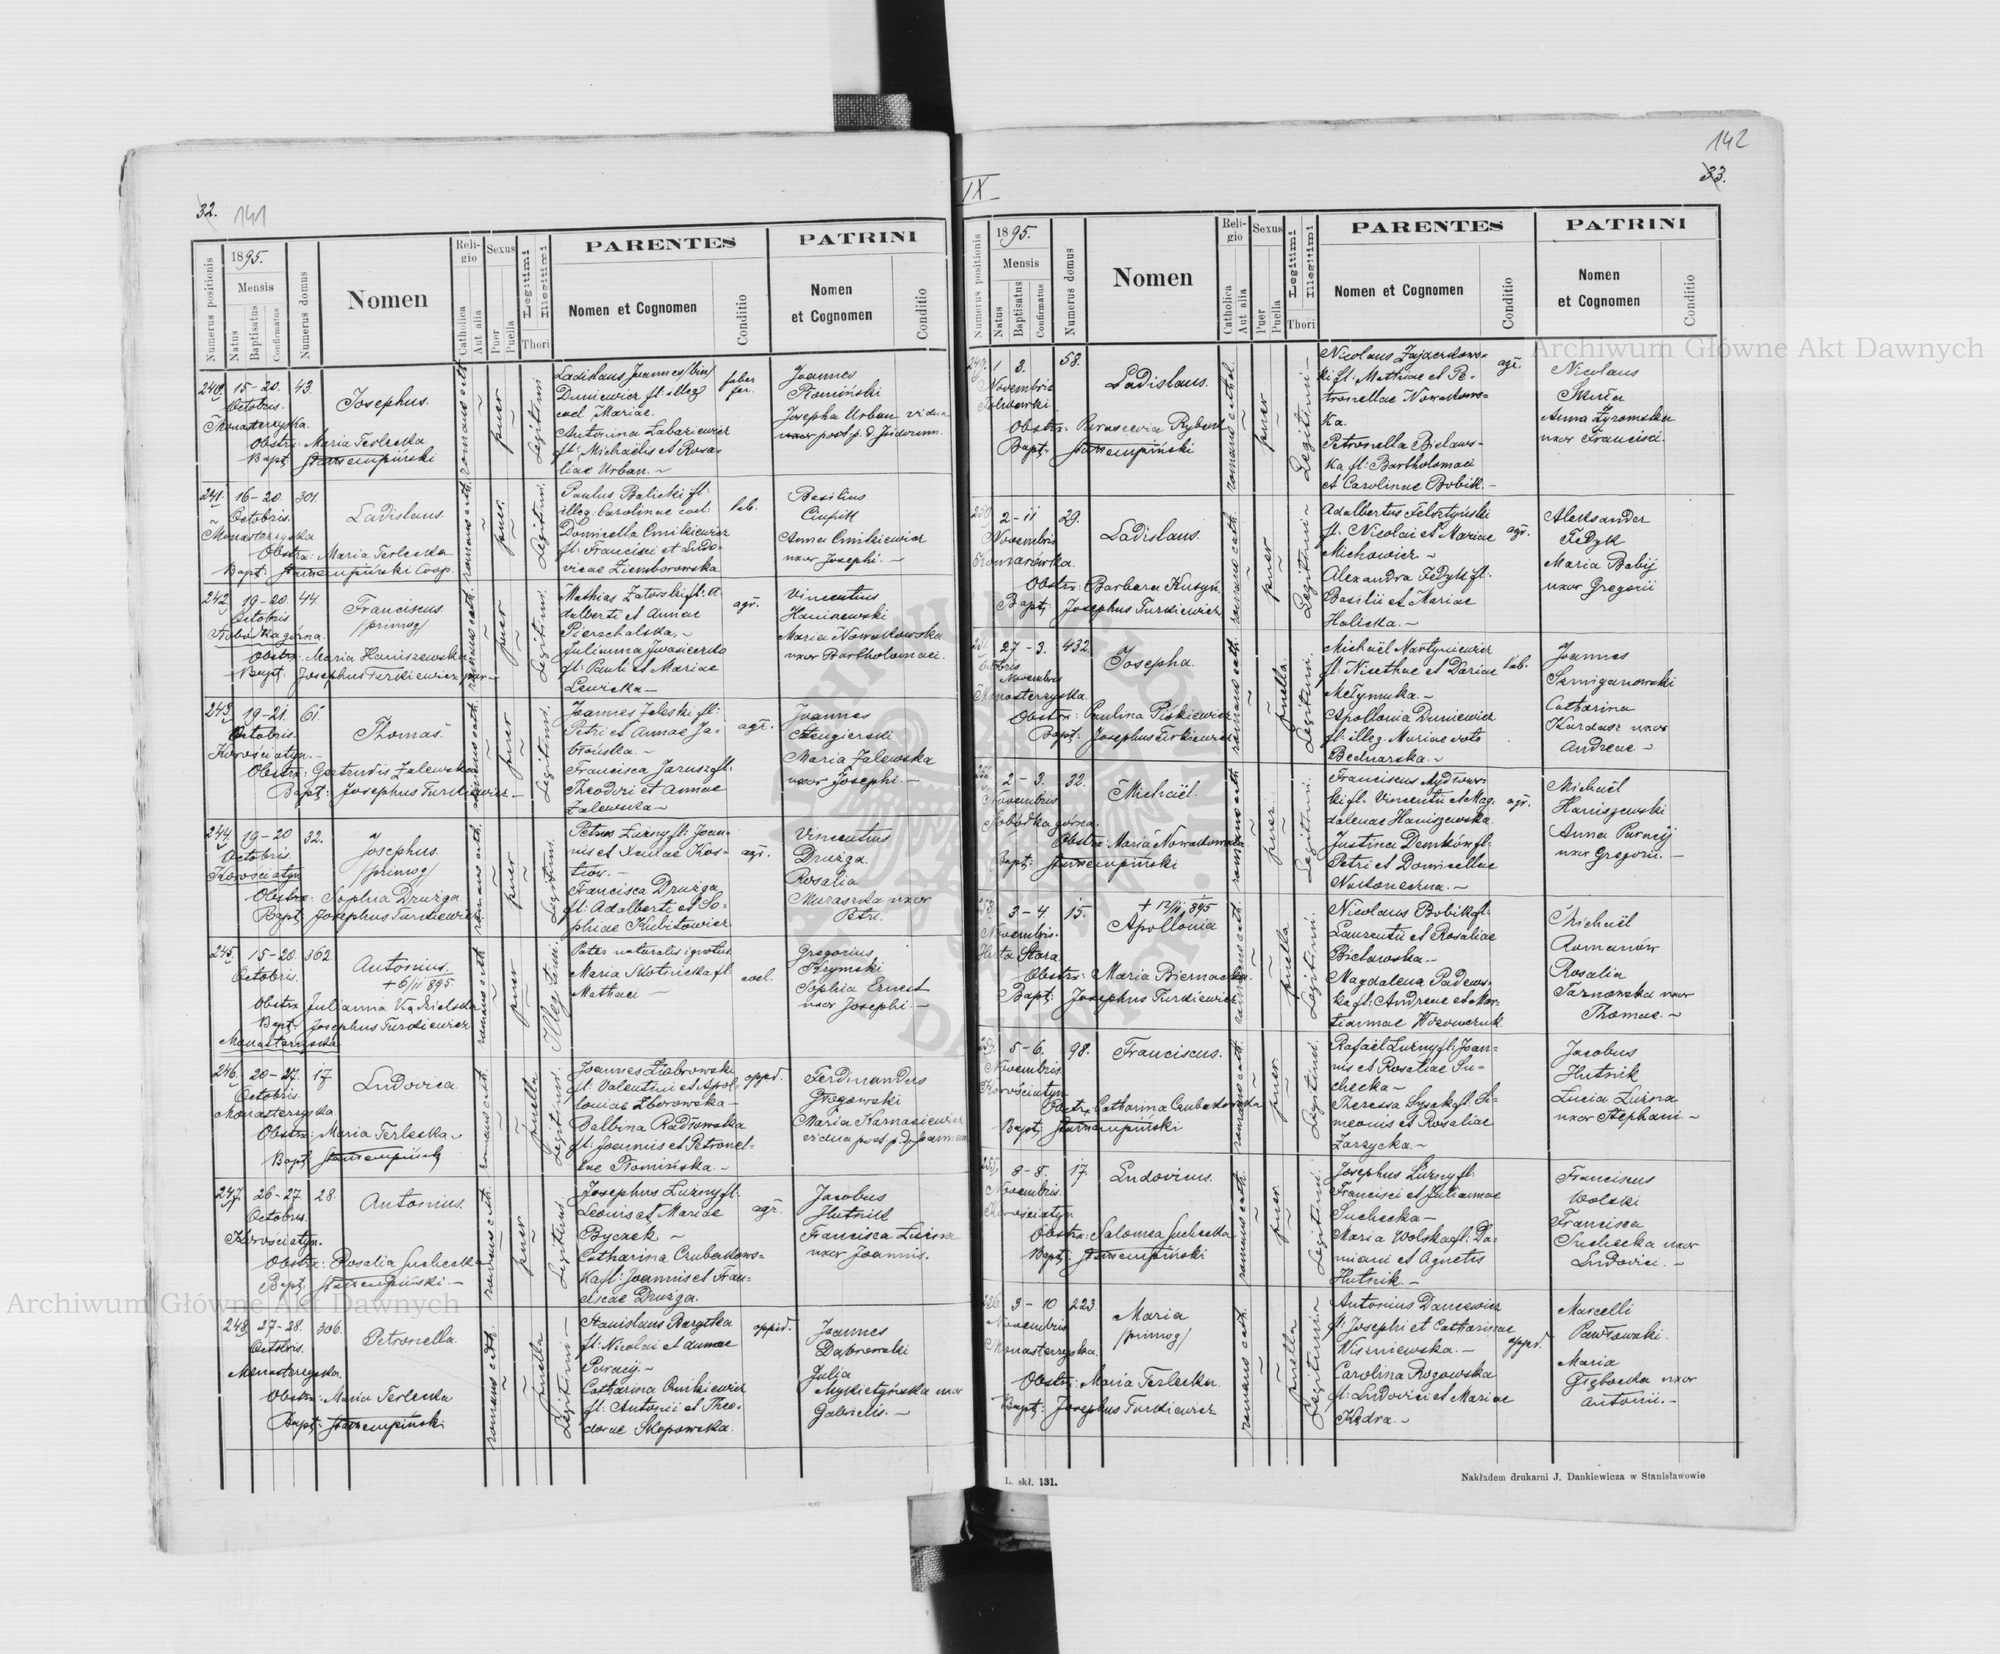 32. 141
Numerus positionis
1895.
Mensis
Natus
Baptisatus
Confirmatus
Numerus domus
Nomen
Religio
Catholica
Aut alia
Sexus
Puer
Puella
Legitimi
Illegitimi
Thori
PARENTES
Nomen et Cognomen
Conditio
PATRINI
Nomen
et Cognomen
Conditio
240. 15-20. 43.
Octobris.
Monasterzyska.
Josephus.
Obstx: Maria Terlecka
Bapt:
romano cath.
puer
Legitimi
Ladislaus Joannes /bin/
Duniewicz fl: illeg
coel. Mariae.
Antonina Labaziewicz
fl: Michaëlis et Rosa-
liae Urban. -
faber
fer.
Joannes
Josepha Urban vidua
241. 16-20. 301.
Octobris.
Monasterzyska
Ladislaus.
Obstx: Maria Terlecka
Bapt: Coop.
romano cath.
puer.
Legitimi.
Paulus Balicki fl:
illeg: Carolinae coel:
Domicella Cmikiewicz
fl: Francisci et Ludo-
vicae Ziemborowska
lab.
Basilius
Ciupik
Anna Cmikiewicz
uxor Josephi. -
242. 19-20. 44.
Octobris
Słobódka górna.
Franciscus
/primog/
Obstx: Maria Haniszewska
Bapt: Josephus Turkiewicz par-
romano cath.
puer
Legitimi.
Mathias Zatorski fl: A
dalberti et Annae
Pierzchalska. -
Julianna
fl: Pauli et Mariae
Lewicka -
agr.
Vincentius
Haniszewski
Maria Nowakowska
uxor Bartholomaei.
243. 19-21. 61.
Octobris.
Korościatyn. -
Thomas.
Obstx: Gertrudis Zalewska
Bapt: Josephus Turkiewicz -
puer
Legitimi.
Joannes Zaleski fl:
Petri et Annae Ja-
błońska. -
Francisca Jarusz fl:
Theodori et Annae
Zalewska -
agr.
Joannes
Maria Zalewska
uxor Josephi. -
244. 19-20 32.
Octobris.
Korościatyn
Josephus.
/primog/
Obstx: Sophia Drużga
Bapt: Josephus Turkiewicz
romano cath.
puer
Legitimi.
Petrus Luzny fl: Joan-
nis et Xeniae Kos-
tiow. -
Francisca Drużga
fl: Adalberti et So-
phiae Kubitowicz
agr.
Vincentius
Drużga.
Rosalia
uxor
Petri.
245. 15-20. 362.
Octobris.
Antonius.
+ 6/11 895
Obstx Julianna Kądzielska
Bapt: Josephus Turkiewicz
Monasterzyska
romano cath
puer
Illeg. timi.
Pater naturalis ignotus.
Maria Słotnicka fl
Mathaei -
coel.
Gregorius
Krymski
Sophia Ernest
uxor Josephi -
246. 20-27. 17
Octobris.
Monasterzyska
Ludovica.
Obstx: Maria Terlecka -
Bapt
romano cath.
puella
Legitimi.
Joannes Ziobrowski
fl: Valentini et Apol-
loniae Zborowska -
Balbina Radłowska
fl: Joannis et Petronel-
lae Płomińska. -
oppid.
Ferdinandus
Głogowski
Maria Karnasiewicz
vidua post p. d. Joannem
247. 26-27 28.
Octobris.
Korościatyn.
Antonius.
Obstx: Rosalia Suchecka
Bapt: -
romano cath.
puer
Legitimi.
Josephus Luzny fl:
Leonis et Mariae
Byczek -
Catharina Czubakows-
ka fl: Joannis et Fran-
ciscae Drużga.
agr.
Jacobus
Hutnik
Francisca Luzna
uxor Joannis.
248. 27-28. 306.
Octobris.
Monasterzyska.
Petronella.
Obstx: Maria Terlecka
Bapt:
romano cath.
puella
Legitimi -
Stanislaus Barytka
fl: Nicolai et Annae
Paraczij -
Catharina Cmikiewicz
fl: Antonii et Theo-
dorae Skopowska.
oppid.
Joannes
Dąbrowski
Julia
Mykietyńska uxor
Gabrielis. -
IX
142
33.
Numerus positionis
1895.
Mensis
Natus
Baptisatus
Confirmatus
Numerus domus
Nomen
Religio
Catholica
Aut alia
Sexus
Puer
Puella
Legitimi
Illegitimi
Thori
PARENTES
Nomen et Cognomen
Conditio
PATRINI
Nomen
et Cognomen
Conditio
249. 1 3. 58.
Novembris
Ladislaus.
Obstx:
Bapt:
romano cathol.
puer
Legitimi -
Nicolaus Zajaczkows-
ki fl: Mathiae et Pe-
tronellae Nowakows-
ka.
Petronella Bielaws-
ka fl: Bartholomaei
et Carolinae Bobik. -
agr.
Nicolaus
Anna Żyromska
uxor Francisci.
250. 2-11 29.
Novembris
Komarówka.
Ladislaus.
Obstx: Barbara
Bapt: Josephus Turkiewicz
romano cath.
puer
Legitimi -
Adalbertus Felsztyński
fl. Nicolai et Mariae
Michowicz -
Alexandra Fedyk fl:
Basilii et Mariae
Halicka. -
agr.
Aleksander
Fedyk
Maria Babij
uxor Gregorii
251. 27-3. 432
Octobris
Novembris
Monasterzyska
Josepha.
Obstx: Paulina Piskiewicz
Bapt: Josephus Turkiewicz
romano cath.
puella.
Legitimi.
Michaël Martyniewicz
fl: Nicethae et Dariae
Mełymuka. -
Apollonia Duniewicz
fl: illeg. Mariae voto
Bednarska. -
lab.
Joannes
Szmiganowski
Catharina
Kardasz uxor
Andreae -
252. 2-3. 32.
Novembris
Słobódka górna.
Michaël.
Obstx: Maria Nowakowska
Bapt:
romano cath
puer.
Legitimi.
Franciscus Mydłows-
ki fl. Vincentii et Mag-
dalenae Haniszewska.
Justina Demków fl:
Petri et Domicellae
agr.
Michaël
Haniszewski
Anna Paraczij
uxor Gregorii. -
253. 3-4. 15.
Novembris.
Huta Stara
+ 12/11 895
Apollonia
Obstx: Maria Biernacka
Bapt: Josephus Turkiewicz
romano cath.
puella
Legitimi.
Nicolaus Bobik fl:
Laurentii et Rosaliae
Bielawska. -
Magdalena Padews-
ka fl: Andreae et Mar-
tiannae Wdowczuk.
Michaël
Romanów
Rosalia
Tarnowska uxor
Thomae. -
254. 5-6. 98.
Novembris.
Korościatyn
Franciscus.
Obstx Catharina Czubakowska
Bapt:
romano cath.
puer
Legitimi.
Rafaël Luzny fl: Joan-
nis et Rosaliae Su-
checka -
Theressa Sysak fl: Si-
meonis et Rosaliae
Zarzycka. -
Jacobus
Hutnik
Lucia Luzna
uxor Stephani -
255. 8-8. 17.
Novembris.
Korościatyn
Ludovicus.
Obstx: Salomea Suchecka
Bapt:
romano cath.
puer.
Legitimi.
Josephus Luzny fl:
Francisci et Juliannae
Suchecka -
Maria Wolska fl: Da-
miani et Agnetis
Hutnik. -
Franciscus
Wolski
Francisca
Suchecka uxor
Ludovici. -
256. 3-10 223.
Novembris
Monasterzyska.
Maria
/primog/
Obstx: Maria Terlecka.
Bapt: Josephus Turkiewicz
romano cath.
puella
Legitimi -
Antonius Dancewicz
fl: Josephi et Catharinae
Wiszniewska. -
Carolina Rogowska
fl: Ludovici et Mariae
Kędra. -
oppid.
Marcelli
Pawłowski.
Maria
Głębocka uxor
Antonii. -
L. skł. 131.
Nakładem drukarni J. Dankiewicza w Stanisławowie
Archiwum Główne Akt Dawnych
Archiwum Główne Akt Dawnych